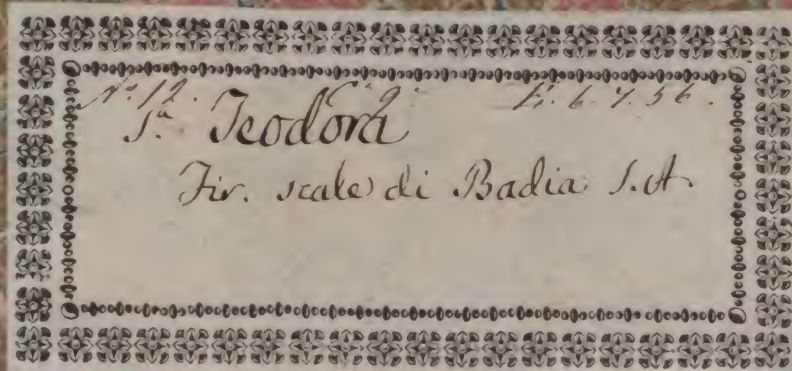 N.º 12. C. 9. E. 6. 7. 56.
S.ª Teodora
Fir. scale di Badia S. A.